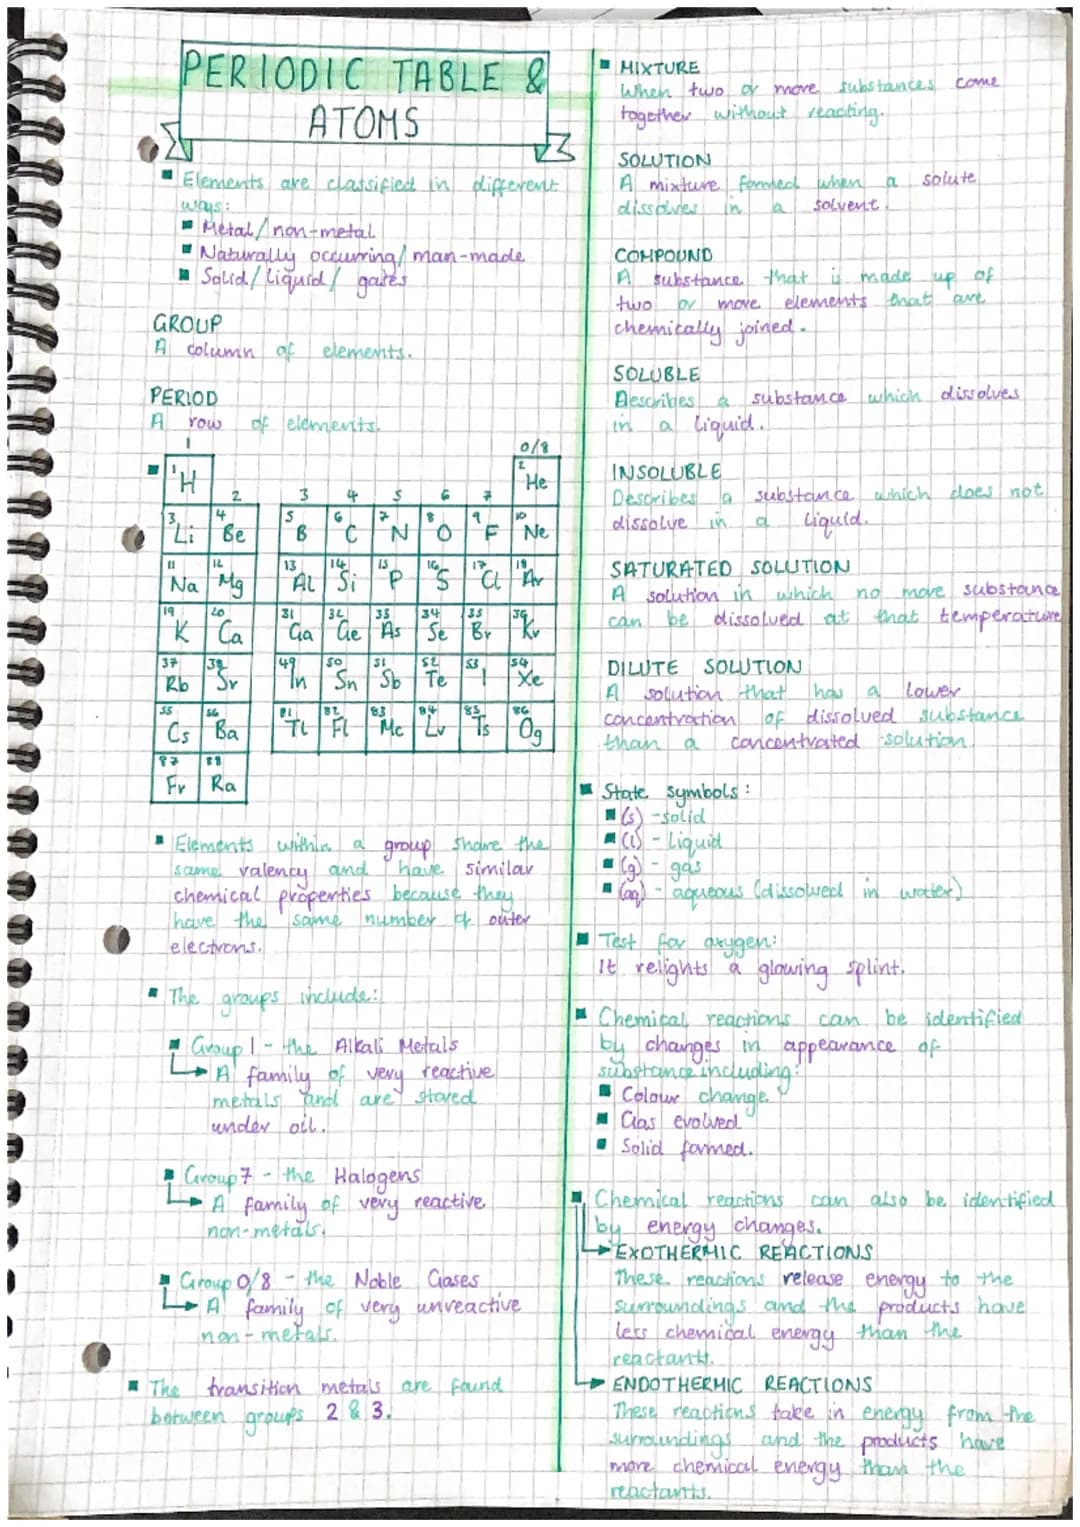 PERIODIC TABLE &
ATOMS
Elements are classified in different
ways:
Metal/non-metal
Naturally occurring/man-made
Solid/liquid/gases
GROUP
A column of elements.
PERIOD
A row of elements.
1 0/8
1 H 2 He
2 3 4 5 6 7
3 Li 4 Be 5 B 6 C 7 N 8 O 9 F 10 Ne
11 Na 12 Mg 13 Al 14 Si 15 P 16 S 17 Cl 18 Ar
19 K 20 Ca 31 Ga 32 Ge 33 As 34 Se 35 Br 36 Kr
37 Rb 38 Sr 49 In 50 Sn 51 Sb 52 Te 53 I 54 Xe
55 Cs 56 Ba 81 Tl 82 Fl 83 Mc 84 Lv 85 Ts 86 Og
87 Fr 88 Ra
Elements within a group share the
same valency and have similar
chemical properties because they
have the same number of outer
electrons.
The groups include:
Group 1 - the Alkali Metals
A family of very reactive
metals and are stored
under oil.
Group 7 - the Halogens
A family of very reactive
non-metals.
Group 0/8 - the Noble Gases
A family of very unreactive
non-metals.
The transition metals are found
between groups 2 & 3.
MIXTURE
When two or more substances come
together without reacting.
SOLUTION
A mixture formed when a solute
dissolves in a solvent.
COMPOUND
A substance that is made up of
two or more elements that are
chemically joined.
SOLUBLE
Describes a substance which dissolves
in a liquid.
INSOLUBLE
Describes a substance which does not
dissolve in a liquid.
SATURATED SOLUTION
A solution in which no more substance
can be dissolved at that temperature
DILUTE SOLUTION
A solution that has a lower
concentration of dissolved substance
than a concentrated solution.
State symbols:
(s) - solid
(l) - liquid
(g) - gas
(aq) - aqueous (dissolved in water)
Test for oxygen:
It relights a glowing splint.
Chemical reactions can be identified
by changes in appearance of
substance including:
Colour change.
Gas evolved.
Solid formed.
Chemical reactions can also be identified
by energy changes.
EXOTHERMIC REACTIONS
These reactions release energy to the
surroundings and the products have
less chemical energy than the
reactants.
ENDOTHERMIC REACTIONS
These reactions take in energy from the
surroundings and the products have
more chemical energy than the
reactants.